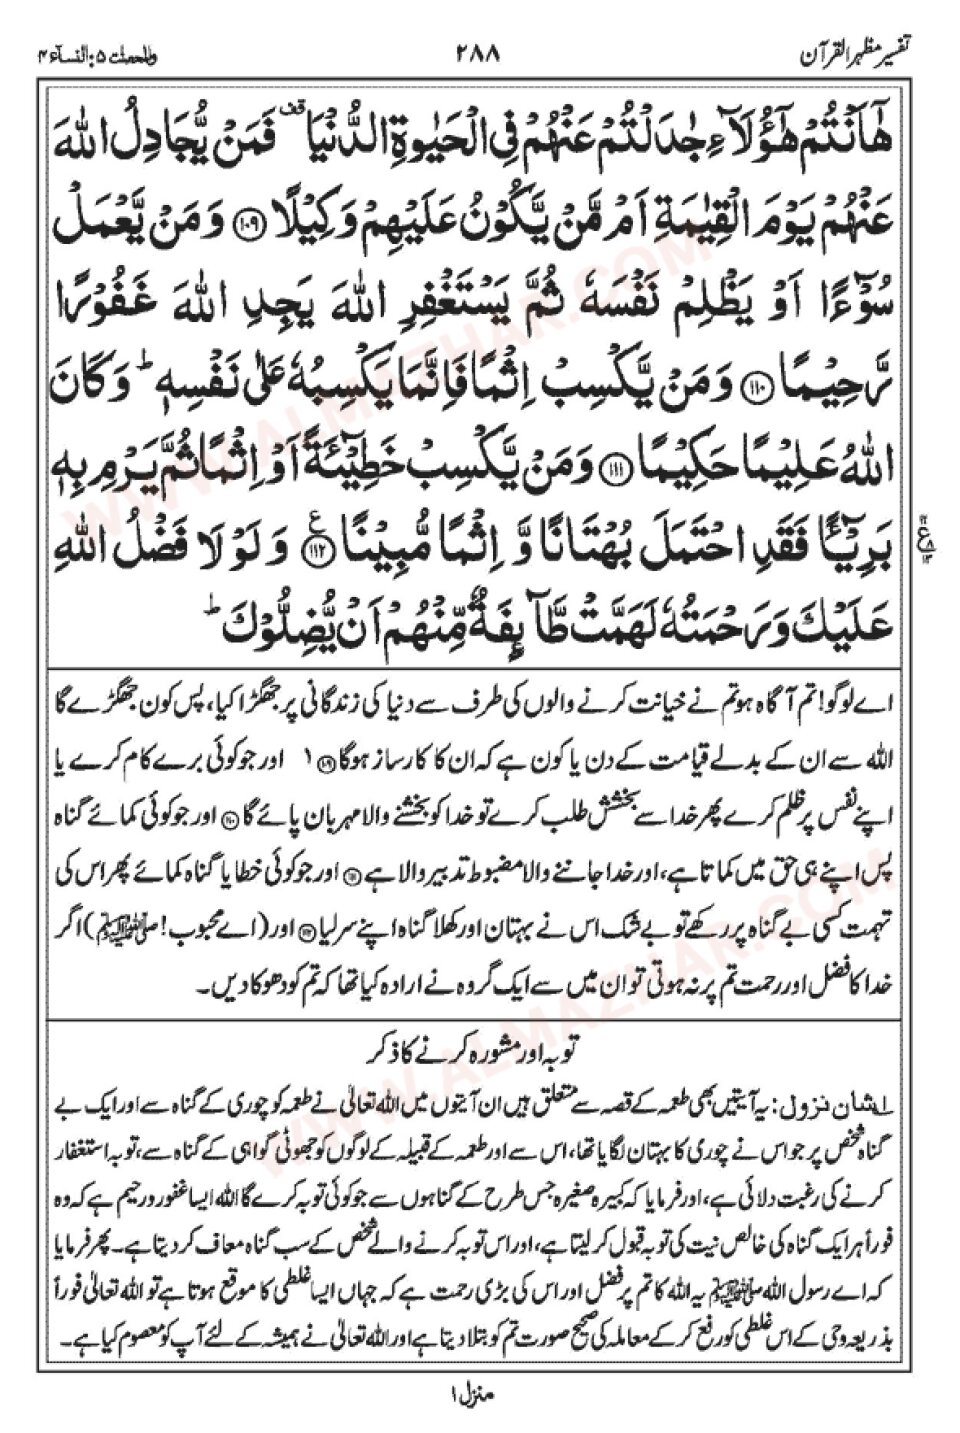 تفسیر مظہر القرآن
۲۸۸
والمحصنٰت ۵: النسآء ۴
هٰۤاَنْتُمْ هٰۤؤُلَآءِ جٰدَلْتُمْ عَنْهُمْ فِی الْحَیٰوةِ الدُّنْیَا قف فَمَنْ یُّجَادِلُ اللّٰهَ
عَنْهُمْ یَوْمَ الْقِیٰمَةِ اَمْ مَّنْ یَّكُوْنُ عَلَیْهِمْ وَكِیْلًا ۝۱۰۹ وَ مَنْ یَّعْمَلْ
سُوْٓءًا اَوْ یَظْلِمْ نَفْسَهٗ ثُمَّ یَسْتَغْفِرِ اللّٰهَ یَجِدِ اللّٰهَ غَفُوْرًا
رَّحِیْمًا ۝۱۱۰ وَ مَنْ یَّكْسِبْ اِثْمًا فَاِنَّمَا یَكْسِبُهٗ عَلٰی نَفْسِهٖ ؕ وَ كَانَ
اللّٰهُ عَلِیْمًا حَكِیْمًا ۝۱۱۱ وَ مَنْ یَّكْسِبْ خَطِیْٓئَةً اَوْ اِثْمًا ثُمَّ یَرْمِ بِهٖ
بَرِیْٓئًا فَقَدِ احْتَمَلَ بُهْتَانًا وَّ اِثْمًا مُّبِیْنًا ۝۱۱۲ ع وَ لَوْ لَا فَضْلُ اللّٰهِ
عَلَیْكَ وَ رَحْمَتُهٗ لَهَمَّتْ طَّآىِٕفَةٌ مِّنْهُمْ اَنْ یُّضِلُّوْكَ ؕ
اے لوگو! تم آگاہ ہو تم نے خیانت کرنے والوں کی طرف سے دنیا کی زندگانی پر جھگڑا کیا، پس کون جھگڑے گا
اللہ سے ان کے بدلے قیامت کے دن یا کون ہے کہ ان کا کارساز ہوگا ۱۰۹ ۱ اور جو کوئی برے کام کرے یا
اپنے نفس پر ظلم کرے پھر خدا سے بخشش طلب کرے تو خدا کو بخشنے والا مہربان پائے گا ۱۱۰ اور جو کوئی کمائے گناہ
پس اپنے ہی حق میں کماتا ہے، اور خدا جاننے والا مضبوط تدبیر والا ہے ۱۱۱ اور جو کوئی خطا یا گناہ کمائے پھر اس کی
تہمت کسی بے گناہ پر رکھے تو بے شک اس نے بہتان اور کھلا گناہ اپنے سر لیا ۱۱۲ اور (اے محبوب! ﷺ) اگر
خدا کا فضل اور رحمت تم پر نہ ہوتی تو ان میں سے ایک گروہ نے ارادہ کیا تھا کہ تم کو دھوکا دیں۔
توبہ اور مشورہ کرنے کا ذکر
۱۔ شان نزول: یہ آیتیں بھی طعمہ کے قصہ سے متعلق ہیں ان آیتوں میں اللہ تعالیٰ نے طعمہ کو چوری کے گناہ سے اور ایک بے
گناہ شخص پر جو اس نے چوری کا بہتان لگایا تھا، اس سے اور طعمہ کے قبیلہ کے لوگوں کو جھوٹی گواہی کے گناہ سے، توبہ استغفار
کرنے کی رغبت دلائی ہے، اور فرمایا کہ کبیرہ صغیرہ جس طرح کے گناہوں سے جو کوئی توبہ کرے گا اللہ ایسا غفور ورحیم ہے کہ وہ
فوراً ہر ایک گناہ کی خالص نیت کی توبہ قبول کر لیتا ہے، اور اس توبہ کرنے والے شخص کے سب گناہ معاف کر دیتا ہے۔ پھر فرمایا
کہ اے رسول اللہ ﷺ یہ اللہ کا تم پر فضل اور اس کی بڑی رحمت ہے کہ جہاں ایسا غلطی کا موقع ہوتا ہے تو اللہ تعالیٰ فوراً
بذریعہ وحی کے اس غلطی کو رفع کر کے معاملہ کی صحیح صورت تم کو بتلا دیتا ہے اور اللہ تعالیٰ نے ہمیشہ کے لئے آپ کو معصوم کیا ہے۔
منزل ۱
WWW.ALMAZHAR.COM
WWW.ALMAZHAR.COM